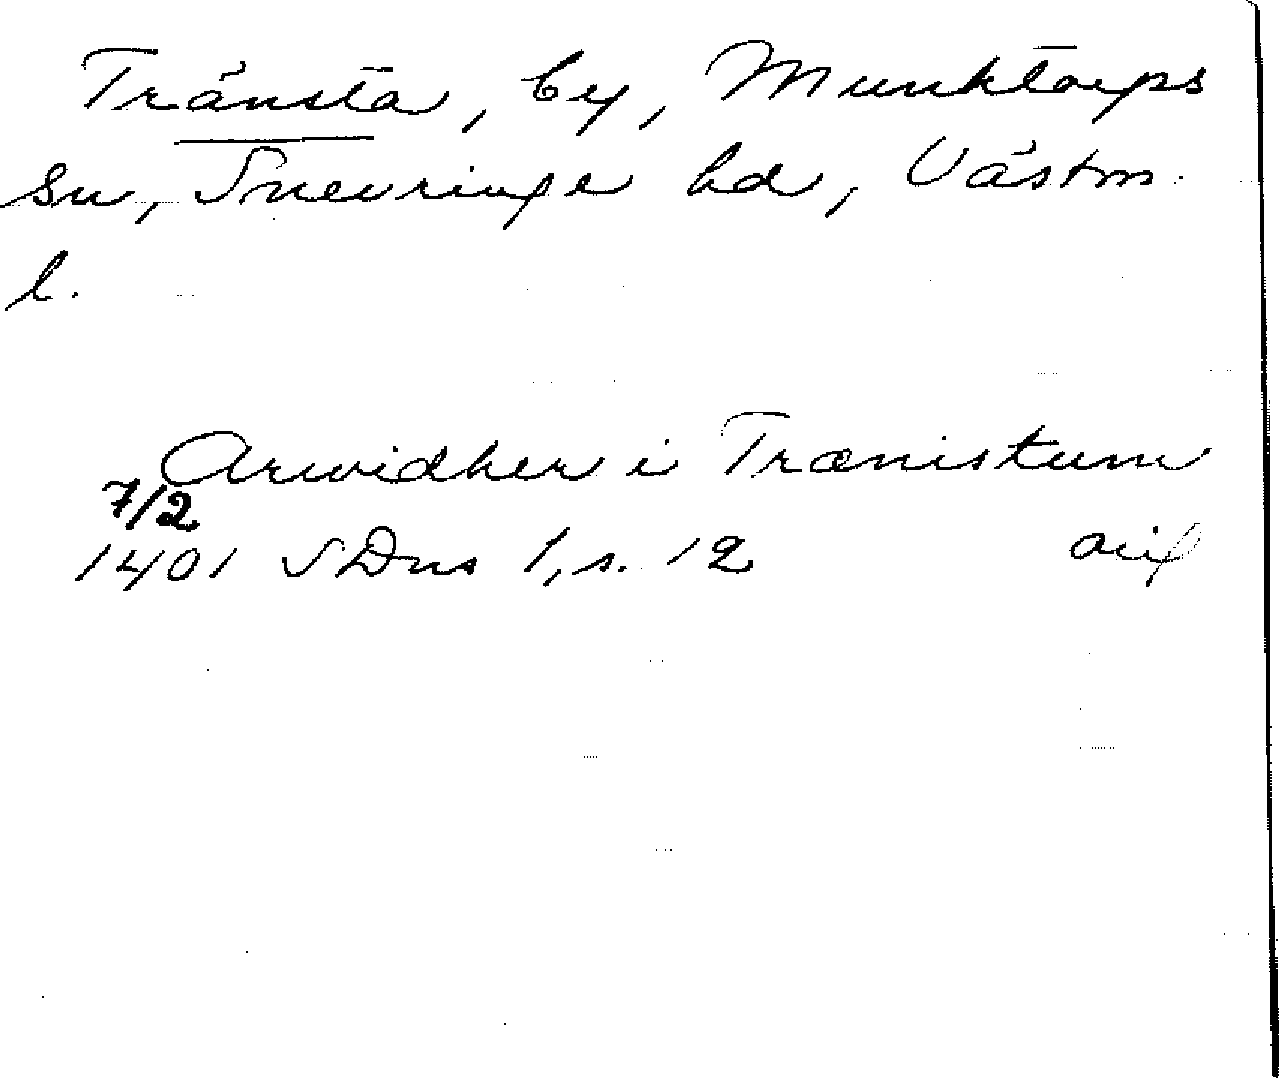 Tränsta, by, Munktorps
sn, Snevringe hd, Västm.
l.
Arwidher i Trænistum
7/2
1401 SDns 1, s. 12